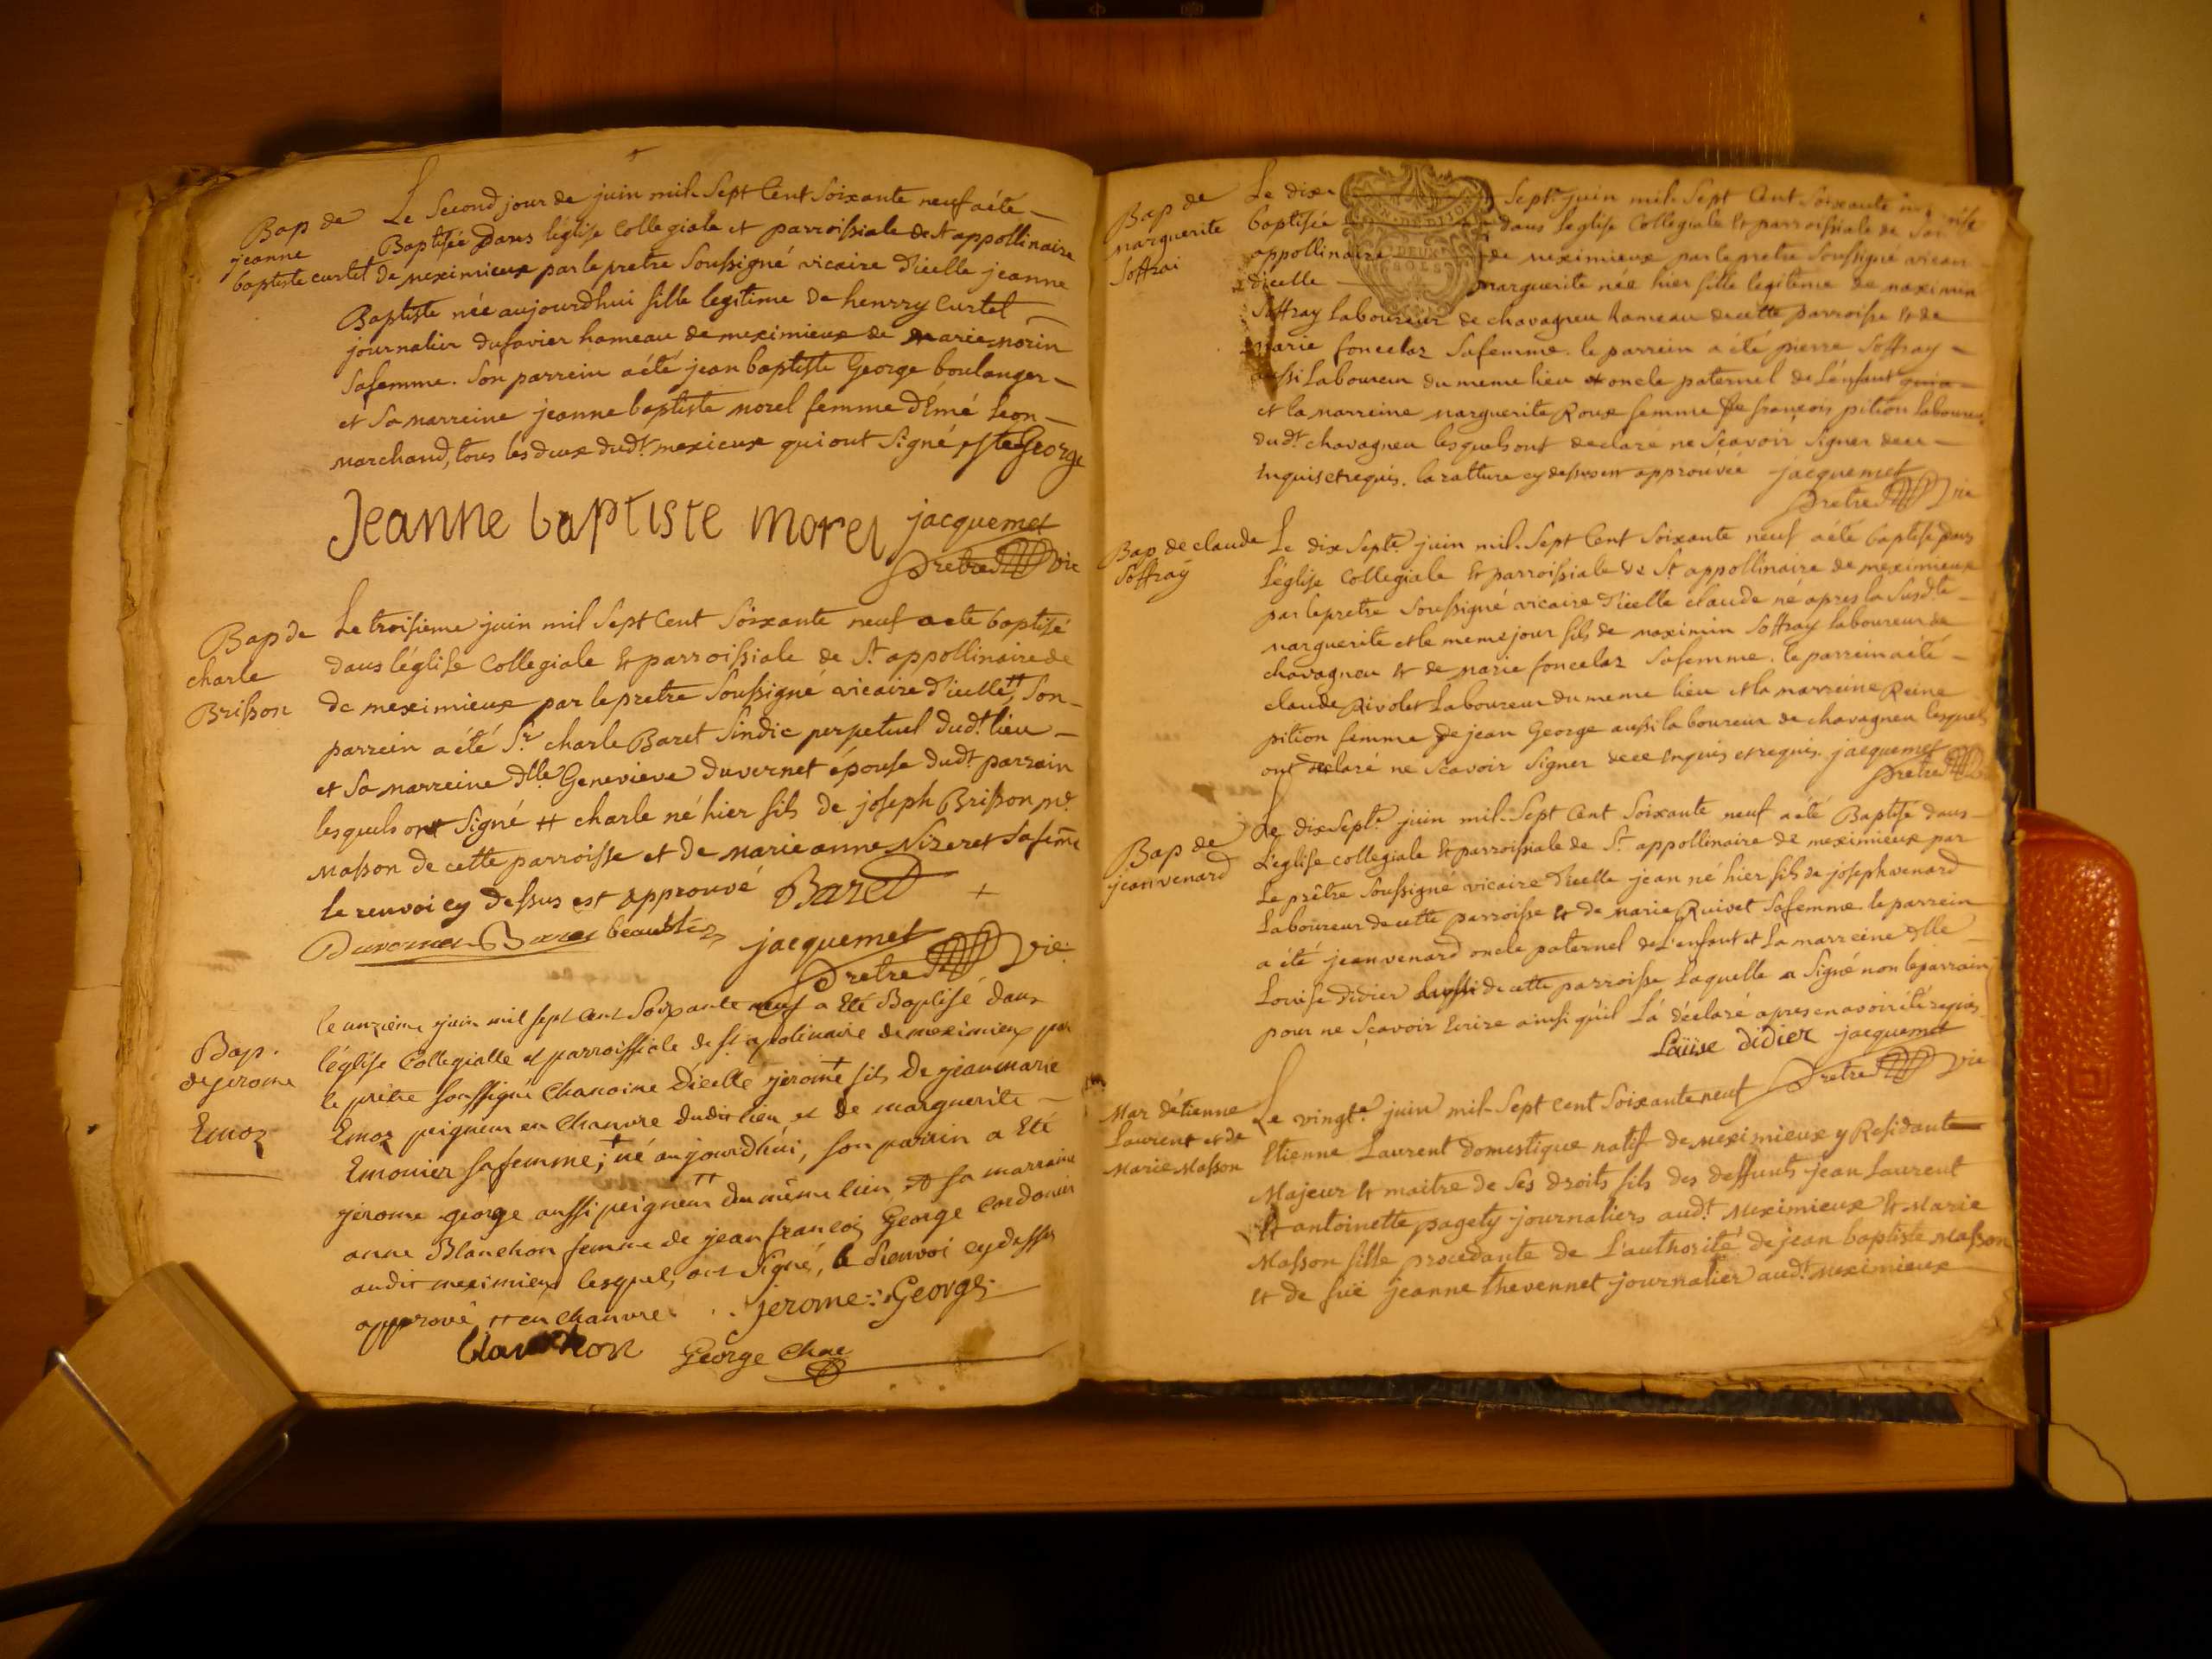 Bap de
jeanne
baptiste curtet
Le Second jour de juin mil Sept Cent Soixante neuf a été
Baptisée Dans l'église Collegiale et parroissiale de St appollinaire
de meximieux par le pretre Soussigné vicaire d'icelle jeanne
Baptiste née aujourdhui fille legitime de henrry Curtet
journalier du favier hameau de meximieux de marie morin
Sa femme. Son parrein a été jean baptiste George boulanger
et Sa marreine jeanne baptiste morel femme d'Emé Leon
marchand, tous les deux dudt mexieux qui ont Signé Jte George
Jeanne baptiste morel jacquemet
pretre vic
Bap de
charle
Brisson
Le troisieme juin mil Sept Cent Soixante neuf a ete baptisé
dans l'église Collegiale et parroissiale de St appollinaire de
de meximieux par le pretre Soussigné vicaire d'icelle ++ Son
parrein a été Sr charle Baret Sindic perpetuel dudt lieu
et Sa marreine dlle Genevieve duvernet épouse dudt parrain
lesquels ont Signé ++ charle né hier fils de joseph Brisson me
masson de cette parroisse et de marie anne Nizeret Safeme
le renvoi cy dessus est approuvé Baret +
Duvernet Baret jacquemet
pretre vic
Bap.
de jerome
Emoz
le onzième juin mil sept cent Soixante neuf a Eté Baptisé dans
l'église Collegialle et parroissiale de st apolinaire de meximieux par
le prêtre soussigné Chanoine d'icelle jerome fils De jean marie
Emoz peigneur en Chanvre dudit lieu et de marguerite
Emonier sa femme; + né aujourdhui, son parrin a Eté
jerome george aussi peigneur ++ du même lieu et sa marraine
anne Blanchon femme de jean françois George Cordonier
audit meximieux lesquels ont signé, le renvoi cy dessus
approuvé ++ en chanvre jerome George
blanchon George Chne
Bap de
marguerite
Soffrai
Le dix Septe juin mil Sept Cent Soixante
baptisée dans l'eglise Collegiale et parroissiale de
appollinaire de meximieux par le pretre Soussigné vicaire
d'icelle marguerite née hier fille legitime de maximin
Soffray laboureur de chavagneu hameau de cette parroisse et de
marie foncelaz Sa femme. le parrein a été pierre Soffray
aussi Laboureur du meme lieu et oncle paternel de L'enfant
et la marreine marguerite Roux femme de françois pition laboureur
dudt chavagneu lesquels ont declaré ne Scavoir Signer de ce
enquis et requis. la rature cy dessus est approuvée jacquemet
pretre vic
Bap de claude
Soffray
Le dix Septe juin mil Sept Cent Soixante neuf a été baptisé dans
l'église Collegiale et parroissiale de St appollinaire de meximieux
par le pretre Soussigné vicaire d'icelle claude né apres la Susdte
marguerite et le meme jour fils de maximin Soffray laboureur de
chavagneu et de marie foncelaz Sa femme. le parrein a été
claude Rivolet Laboureur du meme lieu et la marreine Reine
pition femme de jean George aussi laboureur de chavagneu lesquels
ont declaré ne Scavoir Signer de ce enquis et requis. jacquemet
pretre
Bap de
jean venard
Le dix Septe juin mil Sept Cent Soixante neuf a été Baptisé dans
L'eglise collegiale et parroissiale de St appollinaire de meximieux par
Le prêtre Soussigné vicaire d'icelle jean né hier fils de joseph venard
Laboureur de cette parroisse et de marie Ruivet Sa femme. le parrein
a été jean venard oncle paternel de L'enfant et La marreine dlle
Louise didier aussi de cette parroisse Laquelle a Signé non le parrain
pour ne Scavoir Ecrire ainsi qu'il L'a déclaré apres en avoir été requis
Loüise didier jacquemet
pretre vic
Mar d'etienne
Laurent et de
Marie Masson
Le vingte juin mil Sept Cent Soixante neuf
Etienne Laurent domestique natif de meximieux y Residante
Majeur et maitre de Ses droits fils des deffunts jean Laurent
et antoinette pagety journaliers audt Meximieux et Marie
Masson fille procedante de L'authorité de jean baptiste Masson
et de fuë jeanne thevennet journalier audt meximieux